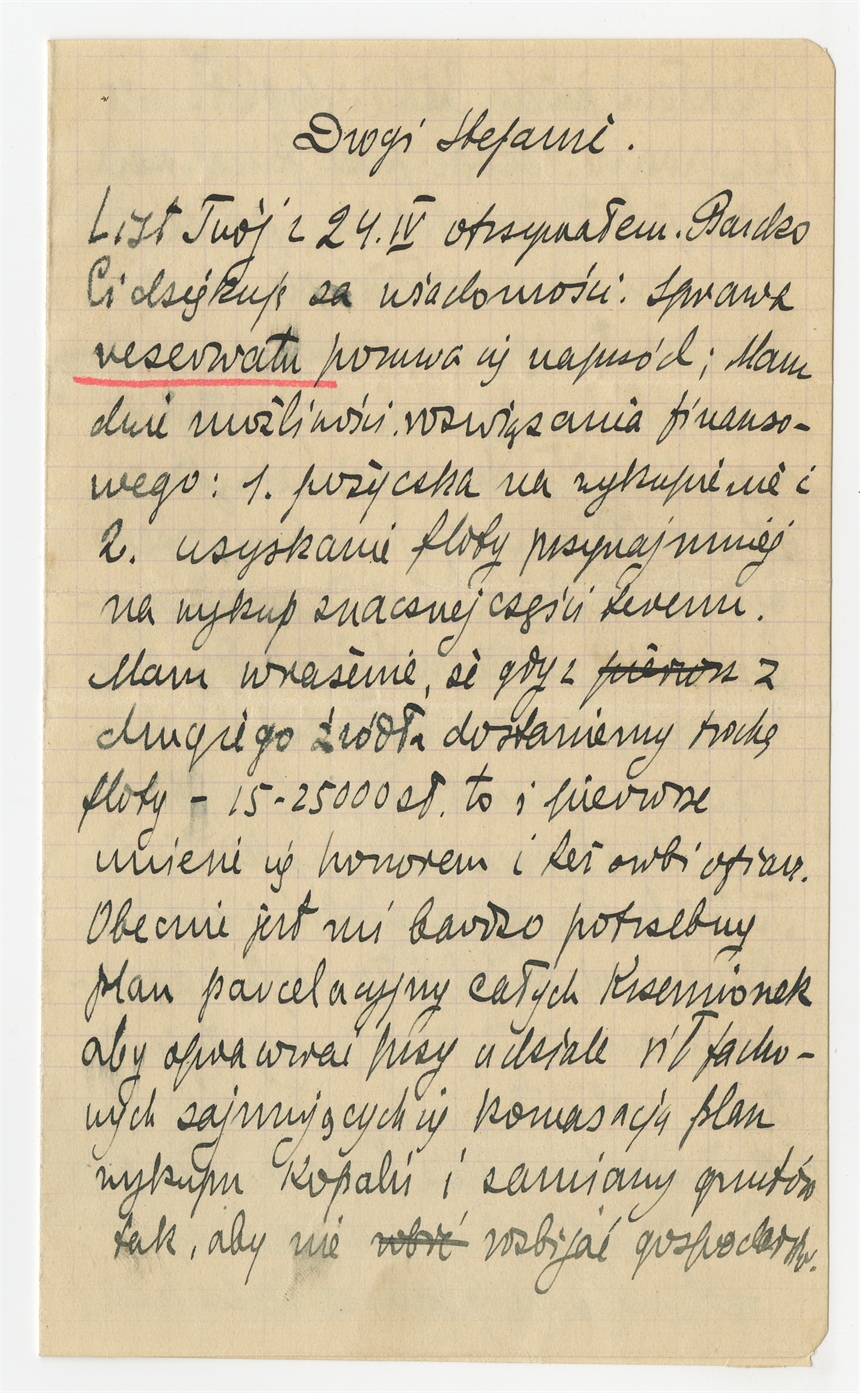 Drogi Stefanie.
List Twój z 24.IV otrzymałem. Bardzo
Ci dziękuję za wiadomości. Sprawa
rezerwatu posuwa się naprzód; Mam
dwie możliwości rozwiązania finanso-
wego: 1. pożyczka na wykupienie i
2. uzyskanie floty przynajmniej
na wykup znacznej części terenu.
Mam wrażenie, że gdy z pierwsz z
drugiego źródła dostaniemy trochę
floty – 15-25000 zł. to i pierwsze
uniesie się honorem i też zrobi ofiarę.
Obecnie jest mi bardzo potrzebny
plan parcelacyjny całych Krzemionek
aby opracować przy udziale sił facho-
wych zajmujących się komasacją plan
wykupu kopalń i zamiany gruntów
tak, aby nie rozbijać gospodarstw.